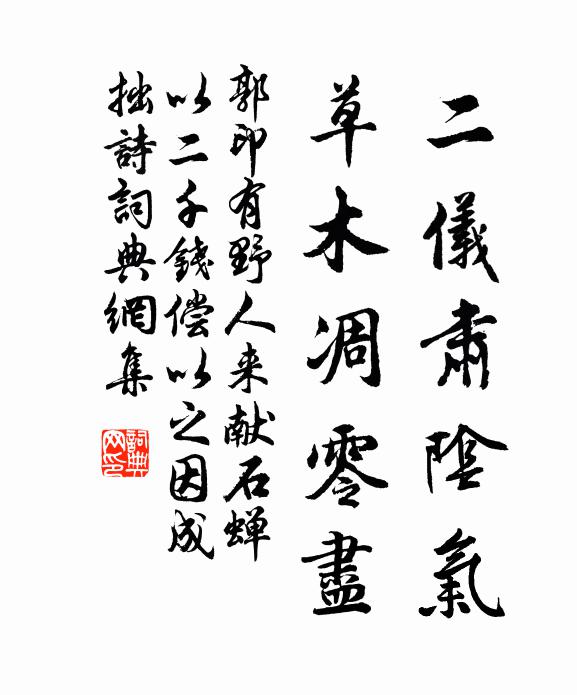 二儀肅陰氣
草木凋零盡
郭印有野人来献石蝉
以二千錢偿以之因成
拙詩詞典網集
詞典
网印